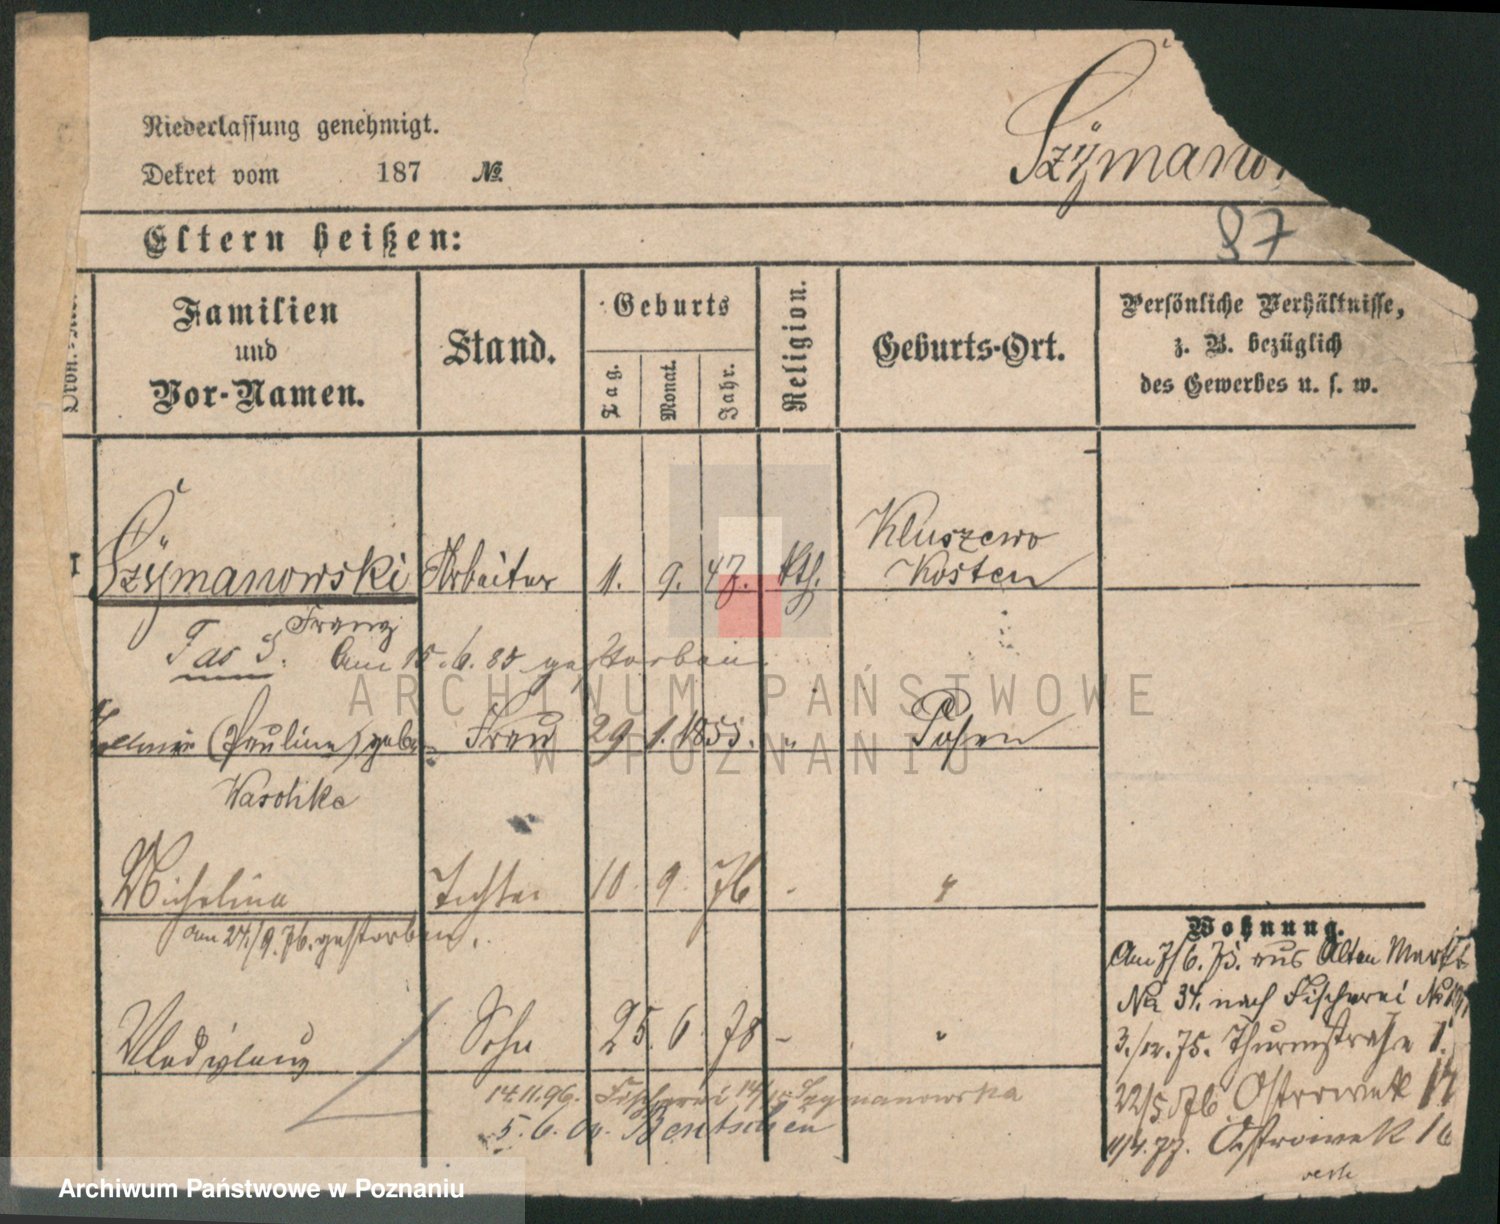 Szÿmanow
Niederlassung genehmigt.
Dekret vom 187 №
Eltern heißen:
97
Familien und Vor-Namen.
Stand.
Geburts
Tag.
Monat.
Jahr.
Religion.
Geburts-Ort.
Persönliche Verhältnisse,
z. B. bezüglich
des Gewerbes u. s. w.
Szÿmanowski Arbeiter 11. 9. 47. kth. Kluszewo
Kosten
Franz
Am 15. 6. 85 gestorben.
(Pauline) geb. Frau 29 1. 1855. " Posen
Waschke
Michelina Tochter 10. 9. 76 - "
am 24./9. 76. gestorben.
Wladislaus Sohn 25. 6. 78 - "
14.11.96. Fischerei 14/15 Szymanowska
5. 6. Bentschen
Wohnung.
Am 7/6. 75. aus Alten Markt
No 34. nach Fischerei No
3./12. 75. Thurmstraße 1.
22/5 76 Ostrowek 17
11/4. 77. Ostrowek 16
ARCHIWUM PAŃSTWOWE
W POZNANIU
Archiwum Państwowe w Poznaniu